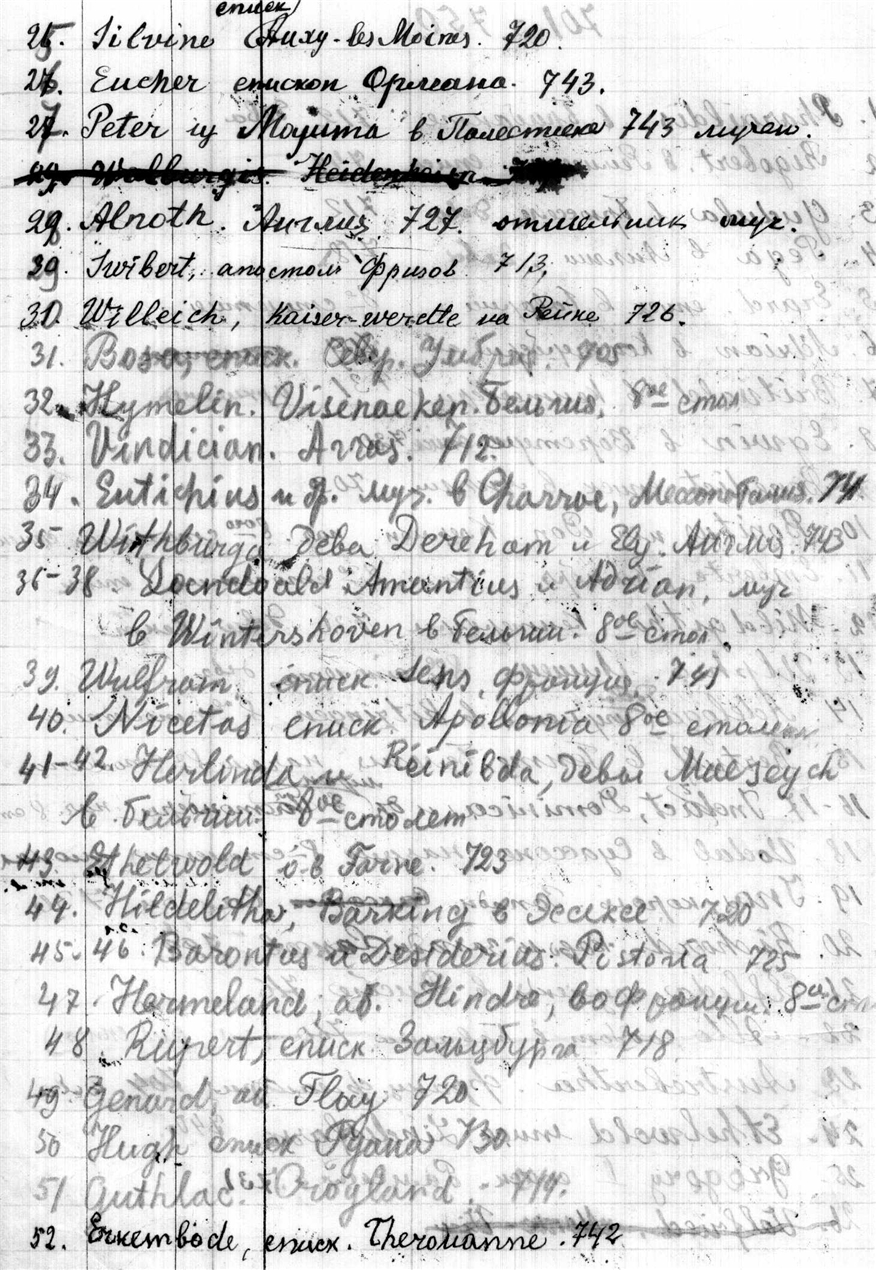 еписк.
25. Silvine Auxy-les Moines. 720.
26. Eucher епископ Орлеана. 743.
27. Peter из Маюма в Палестине 743 мучен.
29. Walburgis. Heidenheim
28. Alnoth. Англия 727. отшельник муч.
29. Swibert, апостол Фризов 713,
30. Willeich, Kaiser-werdte на Рейне 726.
31. Bosa, еписк. 705
32. Hymelin. Visenaeken. Бельгия, 8ое стол
33. Vindician. Arras. 712.
34. Eutichius и др. муч. в Charrae, Месопотамия. 741
35 Withburga дева Dereham и Ely. Англия. 743
36-38 Landoald Amantius и Adrian, муч
в Wintershoven в Бельгии. 8ое стол
39. Wulfram еписк. Sens, Франция, 741
40. Nicetas еписк. Apollonia 8ое столет
41-42 Herlinda и Reinilda, девы Maeseych
в Бельгии. 8ое столет
43. Ethelwold о-в Farne. 723
44. Hildelitha, Barking в Эссексе 720
45-46. Barontus и Desiderius. Pistoria 725
47. Hermeland, аб. Hindre, во Франции. 8ое ст
48 Rupert, еписк. Зальцбурга 718
49 Genard, аб Flay 720
50 Hugh еписк Руана 730
51 Guthlac. Crogland. 714.
52. Erkembode, еписк. Therouanne. 742